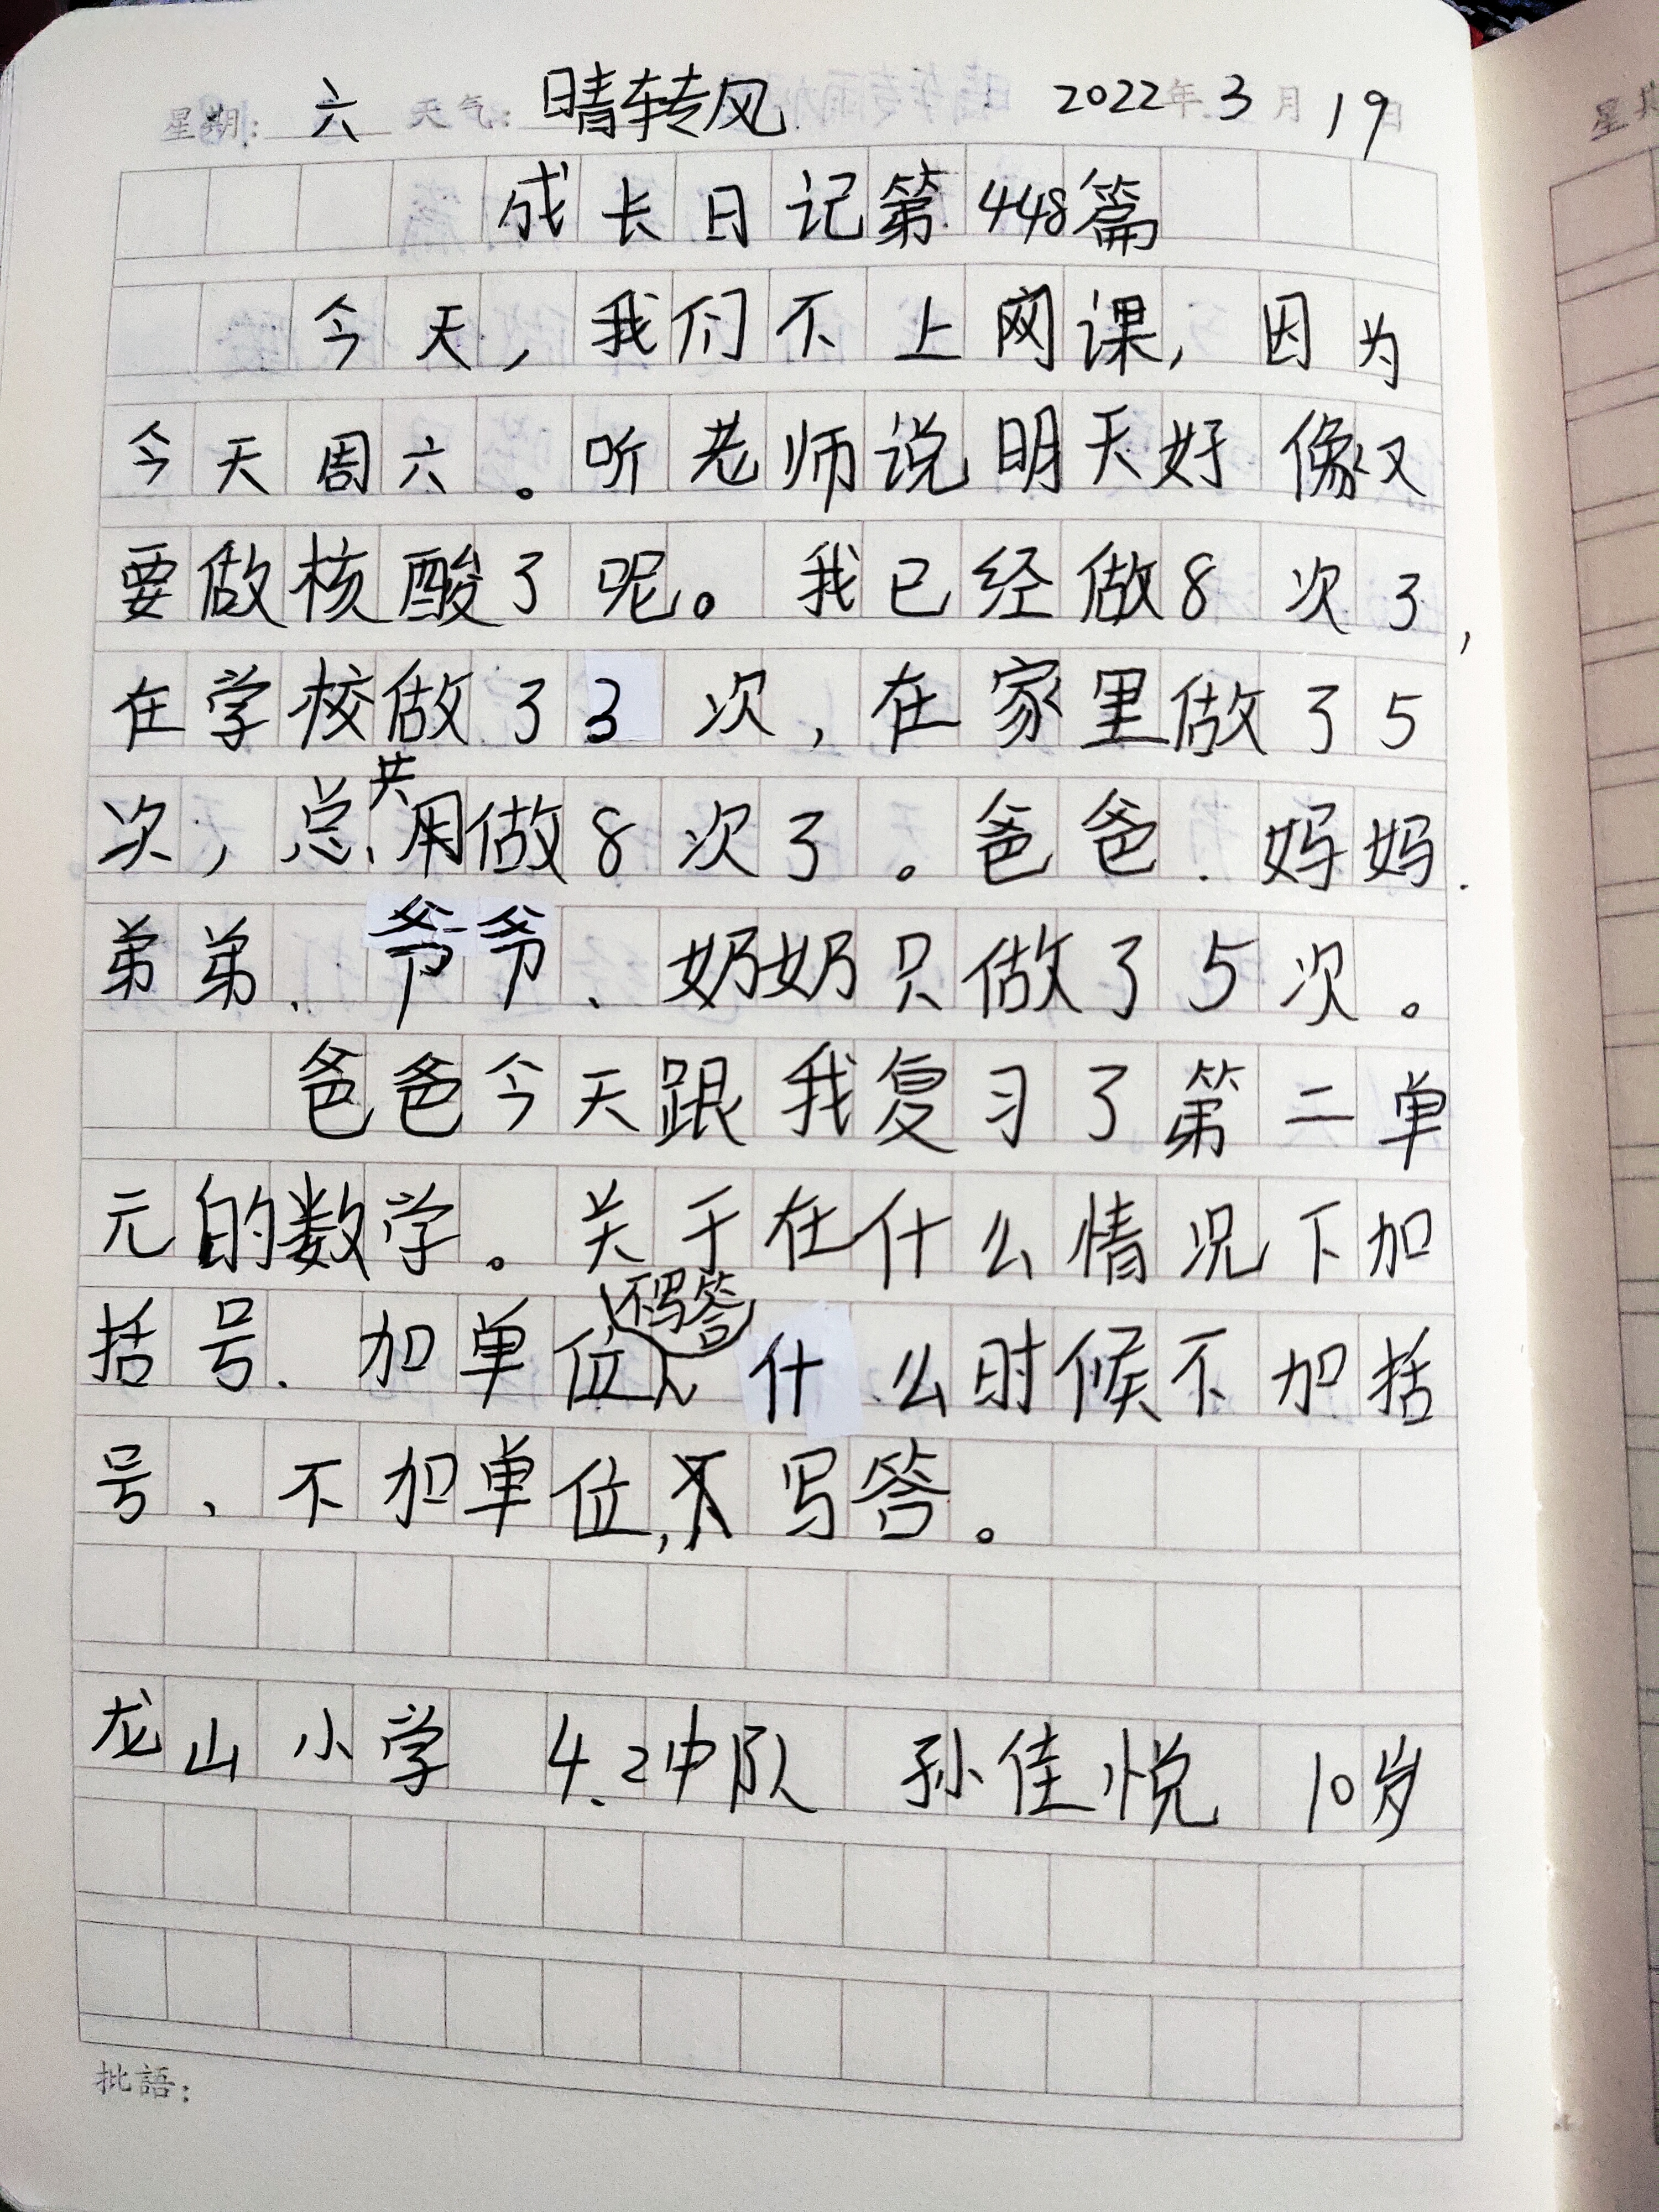 星期：六 天气：晴转风 2022年3月19日
成长日记第448篇
今天，我们不上网课，因为
今天周六。听老师说明天好像又
要做核酸了呢。我已经做8次了，
在学校做了3次，在家里做了5
次，总共用做8次了。爸爸、妈妈、
弟弟、爷爷、奶奶只做了5次。
爸爸今天跟我复习了第二单
元的数学。关于在什么情况下加
括号、加单位、不写答什么时候不加括
号、不加单位，不写答。
龙山小学 4.2中队 孙佳悦 10岁
批語：
星期